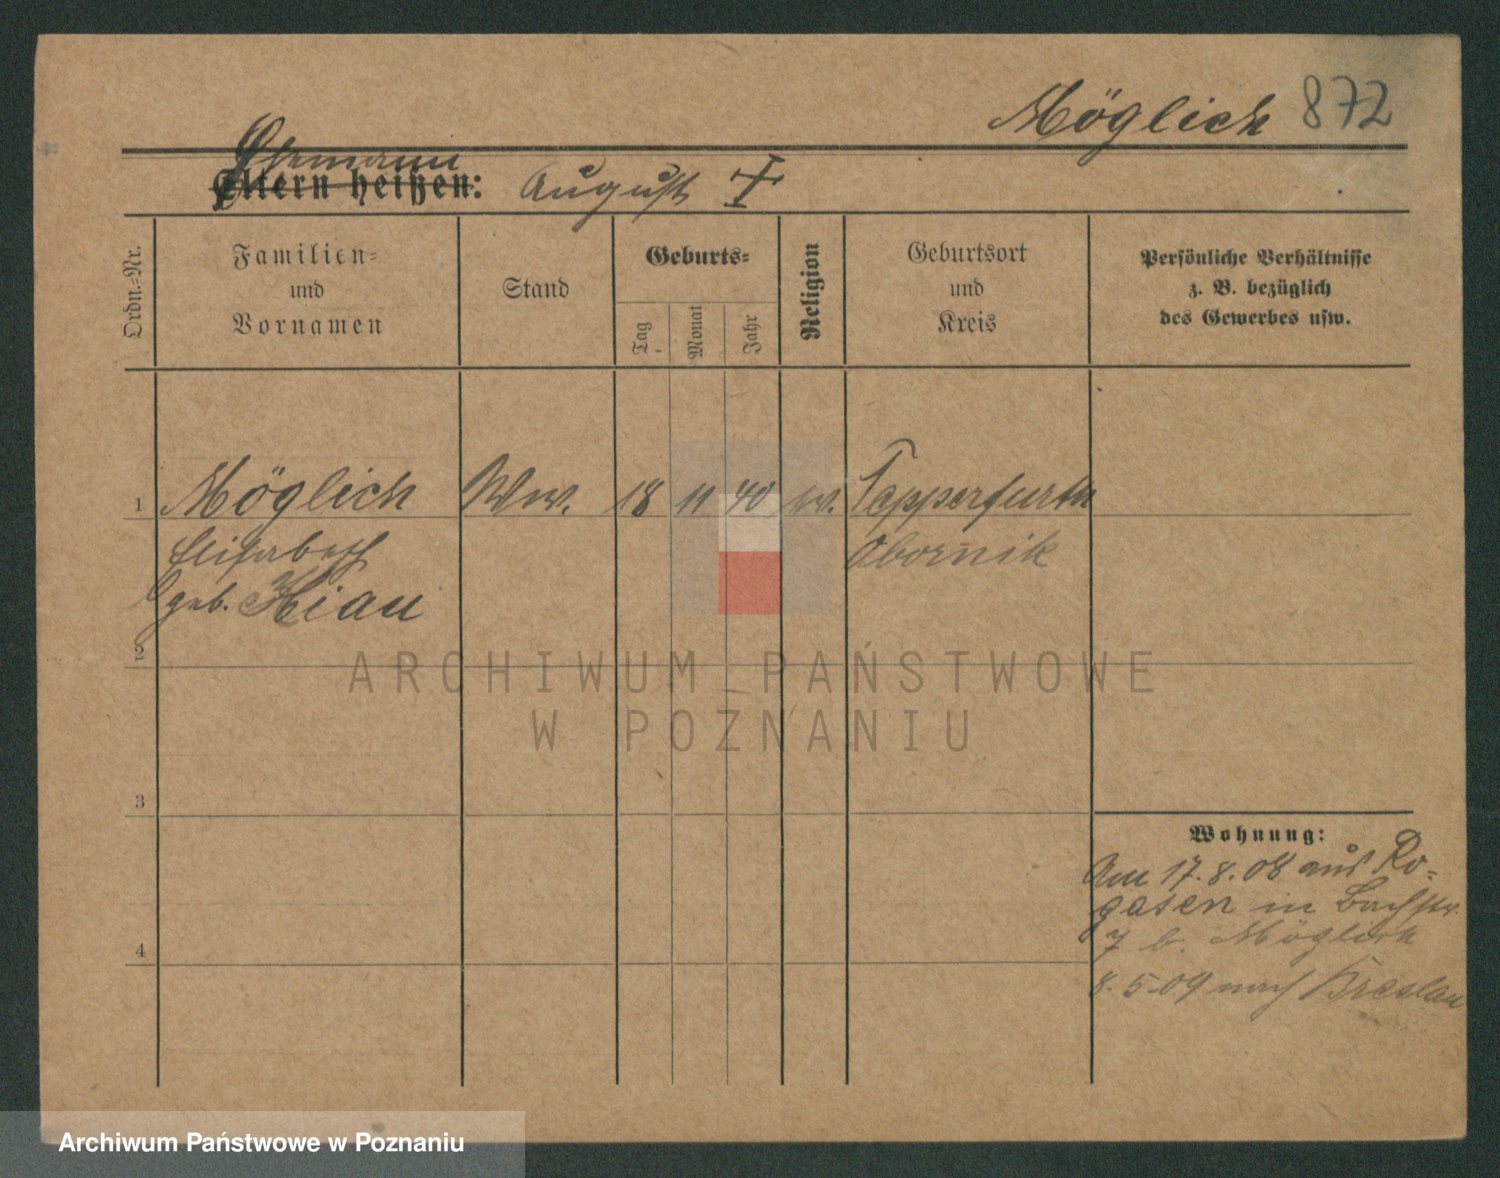 Möglich 872
Ehemann
Eltern heißen: August †
Ordn.=Nr.
Familien=
und
Vornamen
Stand
Geburts=
Tag
Monat
Jahr
Religion
Geburtsort
und
Kreis
Persönliche Verhältnisse
z. B. bezüglich
des Gewerbes usw.
1 Möglich Ww. 18 11 40 ev. Tepperfurth
Elisabeth Obornik
geb. Kiau
2
3
4
Wohnung:
Am 17.8.08 aus Ro=
gasen in Bachstr.
7 b. Möglich
8.5.09 nach Breslau
ARCHIWUM PAŃSTWOWE
W POZNANIU
Archiwum Państwowe w Poznaniu